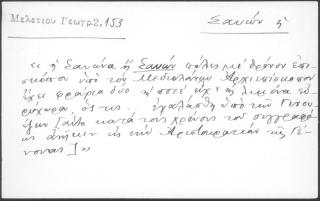 Μελετίου Γεωγρ 2, 153
Σαυών ἡ
«ἡ Σαυώνα ἢ Σαυών πόλις μὲ θρόνον ἐπι-
σκόπου ὑπὸ τὸν Μεδιολάνων Ἀρχιεπίσκοπον
ἔχει φρούρια δύο ἡ ποτὲ εἶχε λιμένα εὐ-
ρύχωρον, ὅστις... ἐχαλάσθη ὑπὸ τῶν Γενου-
κατὰ τοὺς χρόνους τοῦ συγγραφέ-
ως ἀνῆκεν εἰς τὴν Ἀριστοκρατίαν τῆς Γέ-
νουας]»